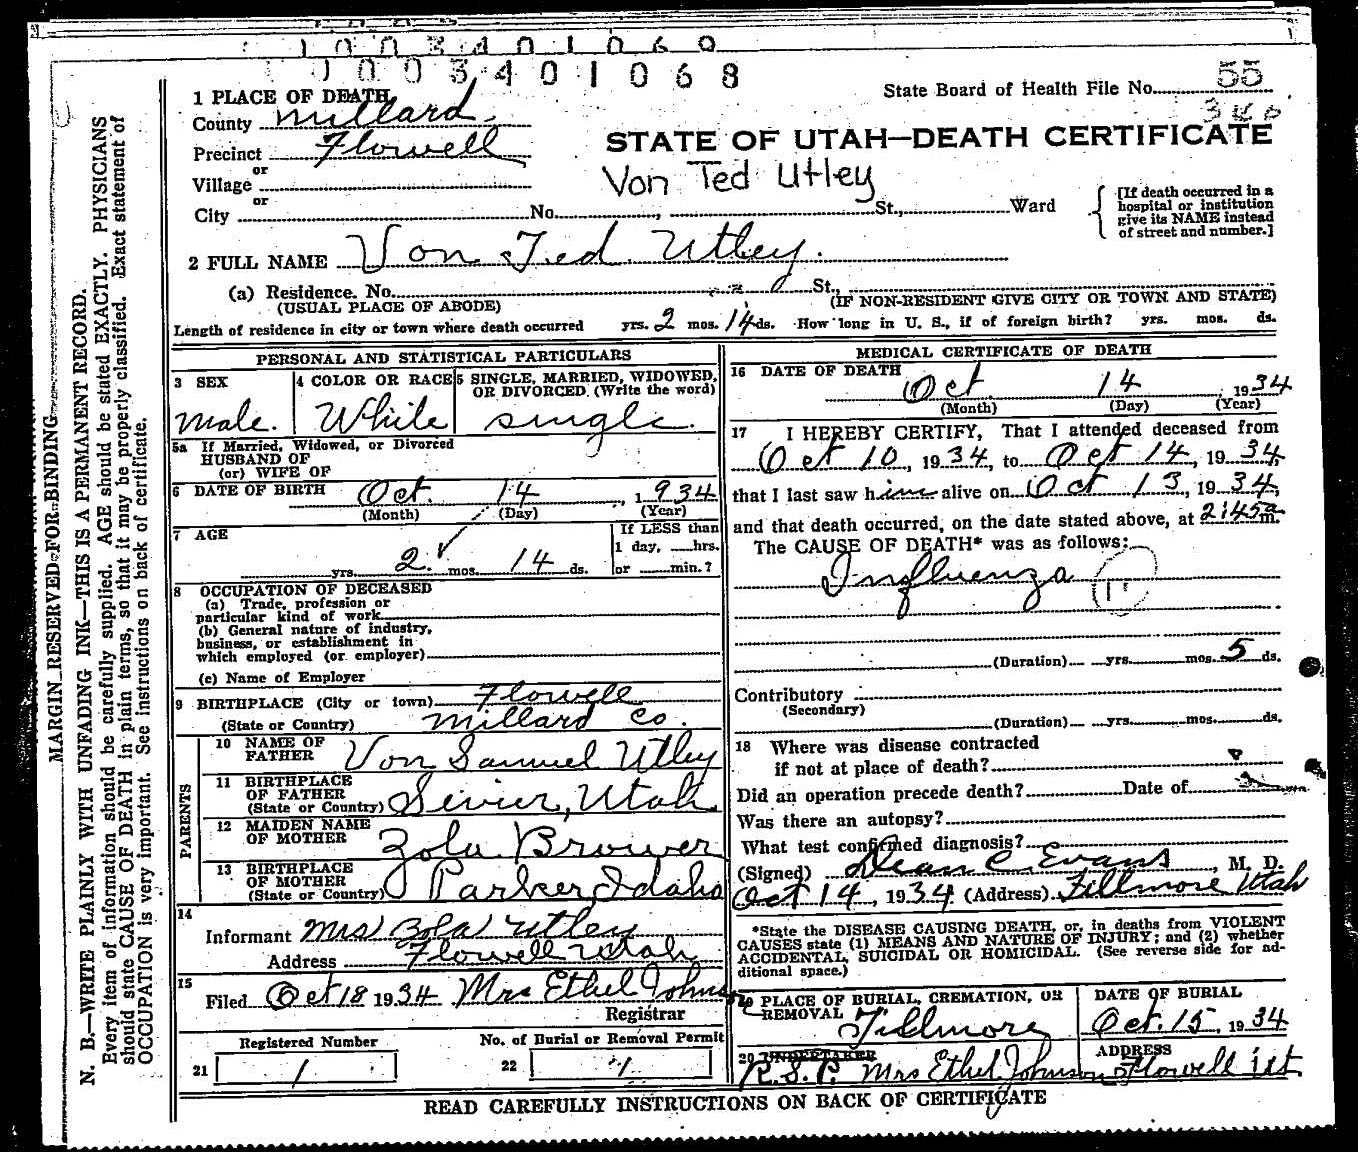 1003401069
1003401068
State Board of Health File No. 55
1 PLACE OF DEATH
County Millard
Precinct Flowell
or
Village
or
City No. , St., Ward
STATE OF UTAH—DEATH CERTIFICATE
Von Ted Utley
[If death occurred in a hospital or institution give its NAME instead of street and number.]
2 FULL NAME Von Ted Utley.
(a) Residence. No. St.,
(USUAL PLACE OF ABODE) (IF NON-RESIDENT GIVE CITY OR TOWN AND STATE)
Length of residence in city or town where death occurred yrs. 2 mos. 14 ds. How long in U. S., if of foreign birth? yrs. mos. ds.
PERSONAL AND STATISTICAL PARTICULARS
3 SEX Male.
4 COLOR OR RACE White
5 SINGLE, MARRIED, WIDOWED, OR DIVORCED (Write the word) single.
5a If Married, Widowed, or Divorced
HUSBAND OF
(or) WIFE OF
6 DATE OF BIRTH Oct. 14, 1934
(Month) (Day) (Year)
7 AGE
yrs. 2 mos. 14 ds.
If LESS than
1 day, hrs.
or min.?
8 OCCUPATION OF DECEASED
(a) Trade, profession or
particular kind of work
(b) General nature of industry,
business, or establishment in
which employed (or employer)
(c) Name of Employer
9 BIRTHPLACE (City or town) Flowell
(State or Country) Millard Co.
PARENTS
10 NAME OF FATHER Von Samuel Utley
11 BIRTHPLACE OF FATHER (State or Country) Sevier, Utah
12 MAIDEN NAME OF MOTHER Zola Brower
13 BIRTHPLACE OF MOTHER (State or Country) Parker, Idaho
14
Informant Mrs Zola Utley
Address Flowell Utah
15
Filed Oct 18 1934 Mrs Ethel Johns
Registrar
Registered Number
21 1
No. of Burial or Removal Permit
22 1
MEDICAL CERTIFICATE OF DEATH
16 DATE OF DEATH
Oct 14 1934
(Month) (Day) (Year)
17 I HEREBY CERTIFY, That I attended deceased from
Oct 10, 1934, to Oct 14, 1934,
that I last saw him alive on Oct 13, 1934,
and that death occurred, on the date stated above, at 2:45a m.
The CAUSE OF DEATH* was as follows:
Influenza 11
(Duration) yrs. mos. 5 ds.
Contributory
(Secondary)
(Duration) yrs. mos. ds.
18 Where was disease contracted
if not at place of death?
Did an operation precede death? Date of
Was there an autopsy?
What test confirmed diagnosis?
(Signed) Dean C. Evans, M. D.
Oct 14, 1934 (Address) Fillmore Utah
*State the DISEASE CAUSING DEATH, or, in deaths from VIOLENT
CAUSES state (1) MEANS AND NATURE OF INJURY; and (2) whether
ACCIDENTAL, SUICIDAL OR HOMICIDAL. (See reverse side for ad-
ditional space.)
19 PLACE OF BURIAL, CREMATION, OR REMOVAL Fillmore
DATE OF BURIAL
Oct. 15, 1934
20 UNDERTAKER
R.S.P. Mrs Ethel Johnson
ADDRESS
Flowell Ut.
READ CAREFULLY INSTRUCTIONS ON BACK OF CERTIFICATE
MARGIN RESERVED FOR BINDING
N. B.—WRITE PLAINLY WITH UNFADING INK—THIS IS A PERMANENT RECORD.
Every item of information should be carefully supplied. AGE should be stated EXACTLY. PHYSICIANS
should state CAUSE OF DEATH in plain terms, so that it may be properly classified. Exact statement of
OCCUPATION is very important. See instructions on back of certificate.